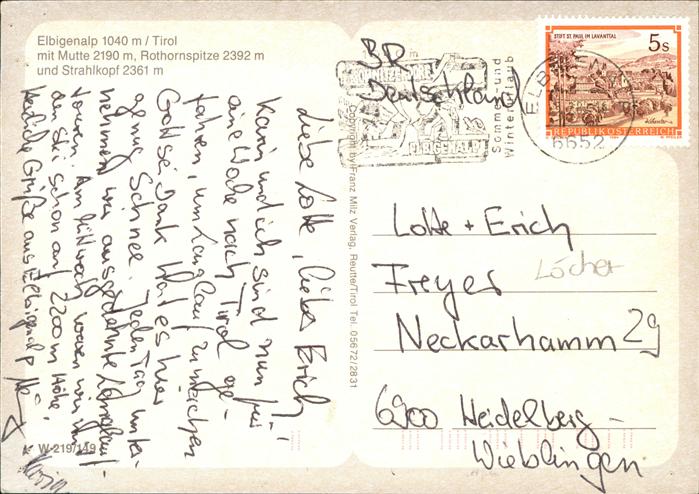 Elbigenalp 1040 m / Tirol
mit Mutte 2190 m, Rothornspitze 2392 m
und Strahlkopf 2361 m
Liebe Lotte, lieber Erich,
Karin und ich sind nun für
eine Woche nach Tirol ge-
fahren, um Langlauf zu machen
Gott sei Dank hat es hier
genug Schnee. Jeden Tag unter-
nehmen wir ausgedehnte Langlauf-
touren. Am Mittwoch waren wir mit
den Ski schon auf 2200 m Höhe.
Herzliche Grüße aus Elbigenalp
Karin
W-219/149
Copyright by Franz Milz Verlag, Reutte/Tirol Tel. 05672/2831
BR
Deutschland
ELBIGENALP
Sommer- und
Winterurlaub
6652
STIFT ST. PAUL IM LAVANTTAL
5 S
REPUBLIK ÖSTERREICH
Lotte + Erich
Freyer
Löcher
Neckarhamm 29
6900 Heidelberg-
Wieblingen